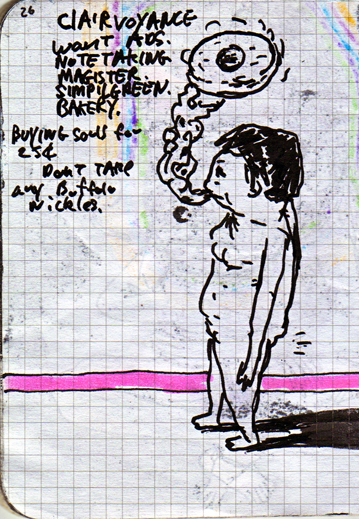 26
CLAIRVOYANCE
WANT ADS.
NOTE TAKING
MAGISTER.
SIMPLGREEN.
BAKERY.
BUYING SOULS for
25¢
DONT TAKE
any Buffalo
Nickles.